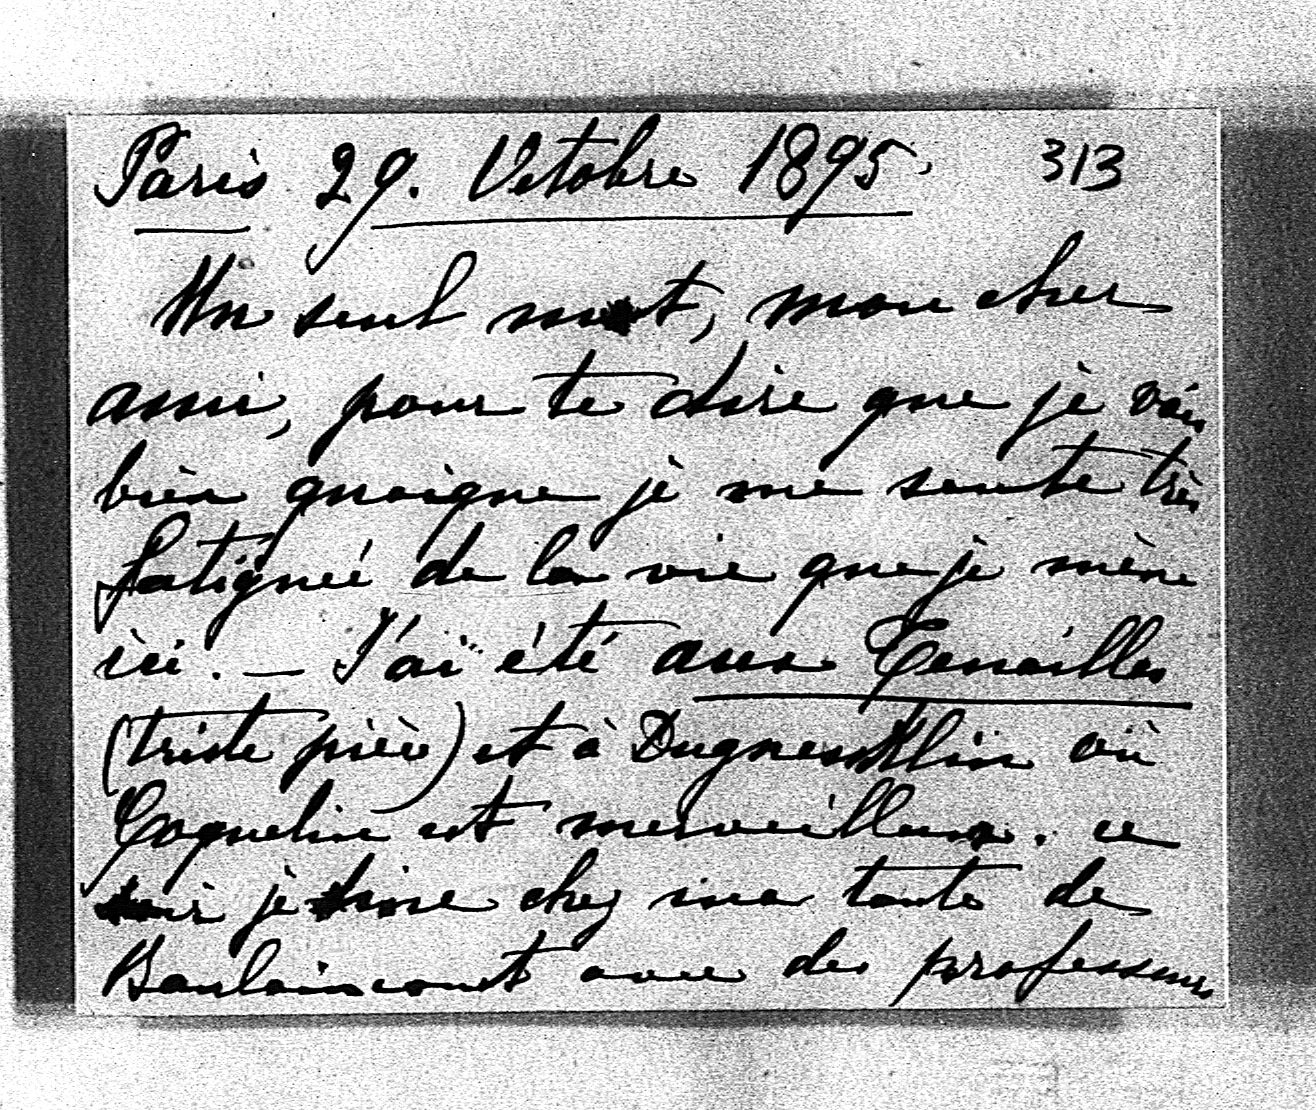 Paris 29. Octobre 1895. 313
Un seul mot, mon cher
ami, pour te dire que je vais
bien quoique je me sente très
fatiguée de la vie que je mène
ici. — J'ai été aux Tenailles
(triste pièce) et à Duguesklin où
Coquelin est merveilleux. ce
soir je dine chez ma tante de
Baulaincourt avec des professeurs